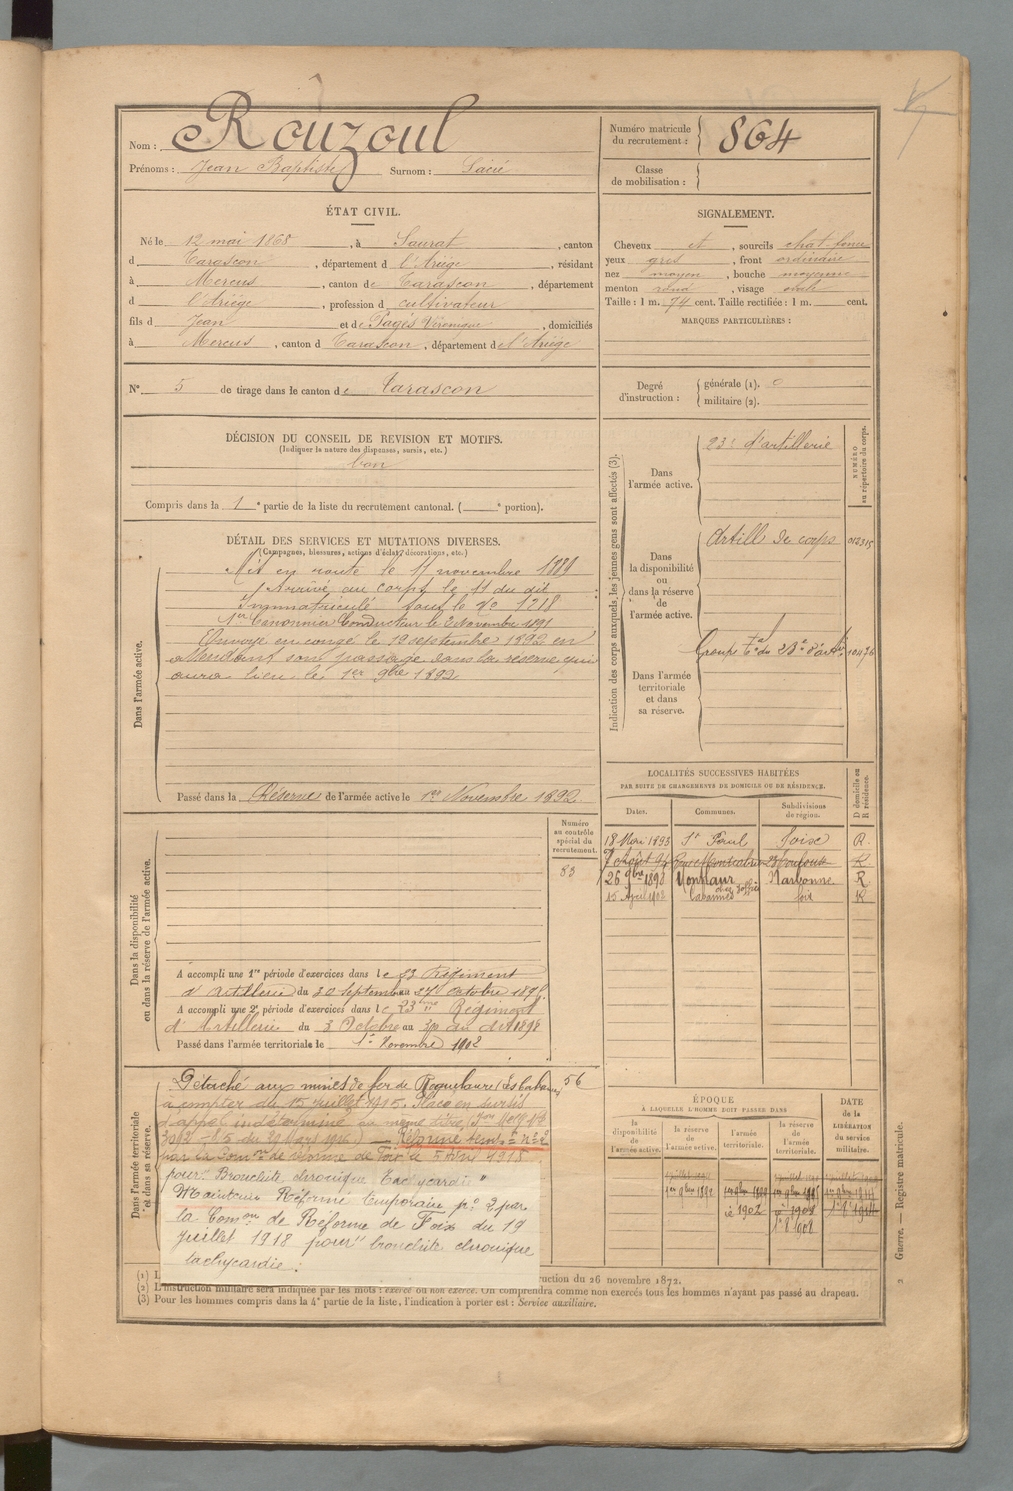 Nom : Rouzoul
Prénoms : Jean Baptiste Surnom :
Numéro matricule du recrutement : 864
Classe de mobilisation :
ÉTAT CIVIL.
Né le 12 mai 1868, à Saurat, canton
d Tarascon, département d l'Ariége, résidant
à Mercus, canton de Tarascon, département
d l'Ariége, profession de cultivateur
fils d Jean et de Pagés Véronique, domiciliés
à Mercus, canton d Tarascon, département de l'Ariége
SIGNALEMENT.
Cheveux et, sourcils chat. foncé
yeux gris, front ordinaire
nez moyen, bouche moyenne
menton rond, visage ovale
Taille : 1 m. 74 cent. Taille rectifiée : 1 m. cent.
MARQUES PARTICULIÈRES :
N° 5 de tirage dans le canton de Tarascon
Degré d'instruction : générale (1). 0
militaire (2).
DÉCISION DU CONSEIL DE REVISION ET MOTIFS.
(Indiquer la nature des dispenses, sursis, etc.)
bon
Compris dans la 1e partie de la liste du recrutement cantonal. ( e portion).
DÉTAIL DES SERVICES ET MUTATIONS DIVERSES.
(Campagnes, blessures, actions d'éclat, décorations, etc.)
Dans l'armée active.
Mis en route le 11 novembre 1889
Arrivé au corps le 11 du dit
Immatriculé sous le No 1218
1er Canonnier Conducteur le 2 Novembre 1891
Envoyé en congé le 19 septembre 1892 en
attendant son passage dans la réserve qui
aura lieu le 1er 9bre 1892
Passé dans la Réserve de l'armée active le 1er Novembre 1892
Indication des corps auxquels les jeunes gens sont affectés (3).
NUMÉRO au répertoire du corps.
Dans l'armée active.
23e d'artillerie
Dans la disponibilité ou dans la réserve de l'armée active.
Artill de corps 012315
Dans l'armée territoriale et dans sa réserve.
Groupe tal du 23e d'artie 10476
LOCALITÉS SUCCESSIVES HABITÉES
PAR SUITE DE CHANGEMENTS DE DOMICILE OU DE RÉSIDENCE.
Dates. Communes. Subdivisions de région. D domicile ou R résidence.
18 Mai 1893 St Paul Foix R.
7 Août 94 R
26 9bre 1898 Narbonne R
15 April 1908 foix R
Dans la disponibilité ou dans la réserve de l'armée active.
Numéro au contrôle spécial du recrutement.
83
A accompli une 1re période d'exercices dans le 23 Régiment
d'Artillerie du 30 septembre au 27 octobre 1895.
A accompli une 2e période d'exercices dans le 23ème Régiment
d'Artillerie du 3 Octobre au 30 du dit 1898
Passé dans l'armée territoriale le 1er Novembre 1902
Dans l'armée territoriale et dans sa réserve.
Détaché aux mines de fer de Roquelaure 56
à compter du 15 juillet 1915. Placé en sursis
d'appel indéterminé au même titre
du 29 Mars 1916) — Réforme temp. n° 2
par la Comon de réforme de Foix le 5 1918
pour "Bronchite chronique Tachycardie"
Maintenu Réformé Temporaire no 2 par
la Comon de Réforme de Foix du 19
juillet 1918 pour "bronchite chronique
tachycardie.
ÉPOQUE
À LAQUELLE L'HOMME DOIT PASSER DANS
la disponibilité de l'armée active. la réserve de l'armée active. l'armée territoriale. la réserve de l'armée territoriale.
DATE de la LIBÉRATION du service militaire.
1er 9bre 1892
1902 1908 1914
(1) L
ruction du 26 novembre 1872.
(2) L'instruction militaire sera indiquée par les mots : exercé ou non exercé. On comprendra comme non exercés tous les hommes n'ayant pas passé au drapeau.
(3) Pour les hommes compris dans la 4e partie de la liste, l'indication à porter est : Service auxiliaire.
2 Guerre. — Registre matricule.